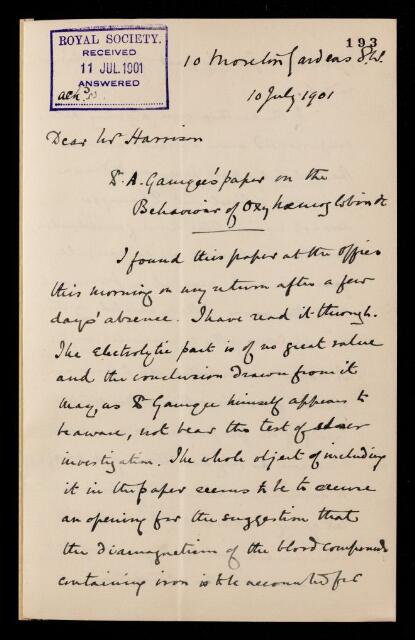 ROYAL SOCIETY.
RECEIVED
11 JUL.1901
ANSWERED
ackd.
193
10 Moreton Gardens S.W.
10 July 1901
Dear Mr Harrison
Dr. A. Gamgee's paper on the
Behaviour of Oxyhæmoglobin &c
I found this paper at the office
this morning on my return after a few
days' absence. I have read it through.
The electrolytic part is of no great value
and the conclusion drawn from it
may, as Dr Gamgee himself appears to
be aware, not bear the test of closer
investigation. The whole object of including
it in the paper seems to be to secure
an opening for the suggestion that
the diamagnetism of the blood compounds
containing iron is to be accounted for